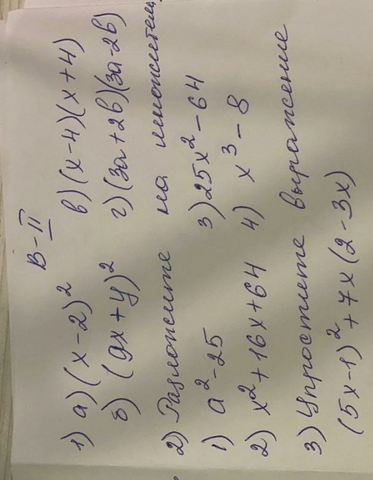 В-II
1) а) (x-2)² в) (x-4)(x+4)
б) (9x+y)² г) (3a+2b)(3a-2b)
2) Разложите на множители
1) a²-25 3) 25x²-64
2) x²+16x+64 4) x³-8
3) Упростите выражение
(5x-1)²+7x(2-3x)